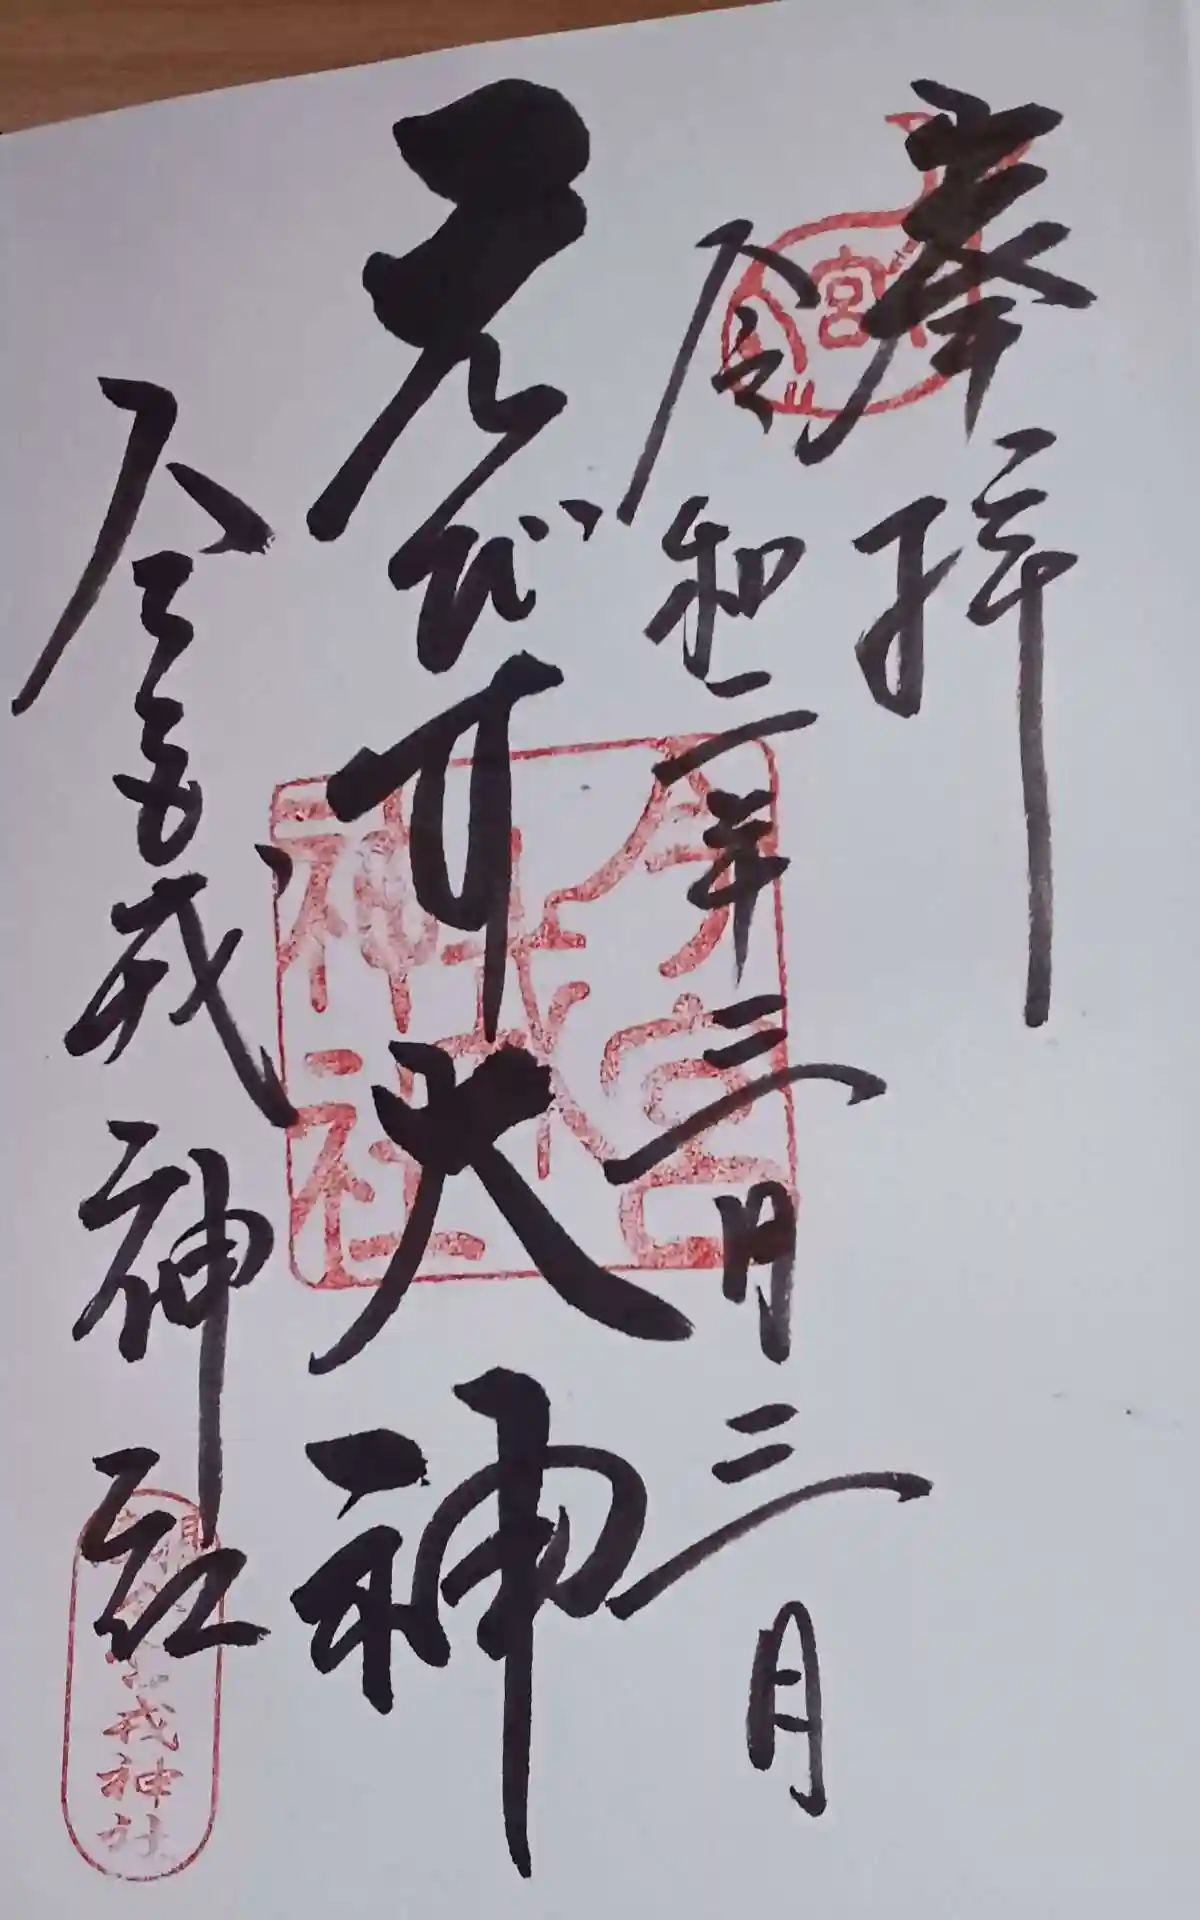 奉拝
令和二年三月三日
えびす大神
今宮戎神社
今宮
戎
神社
宮戎神社
宮